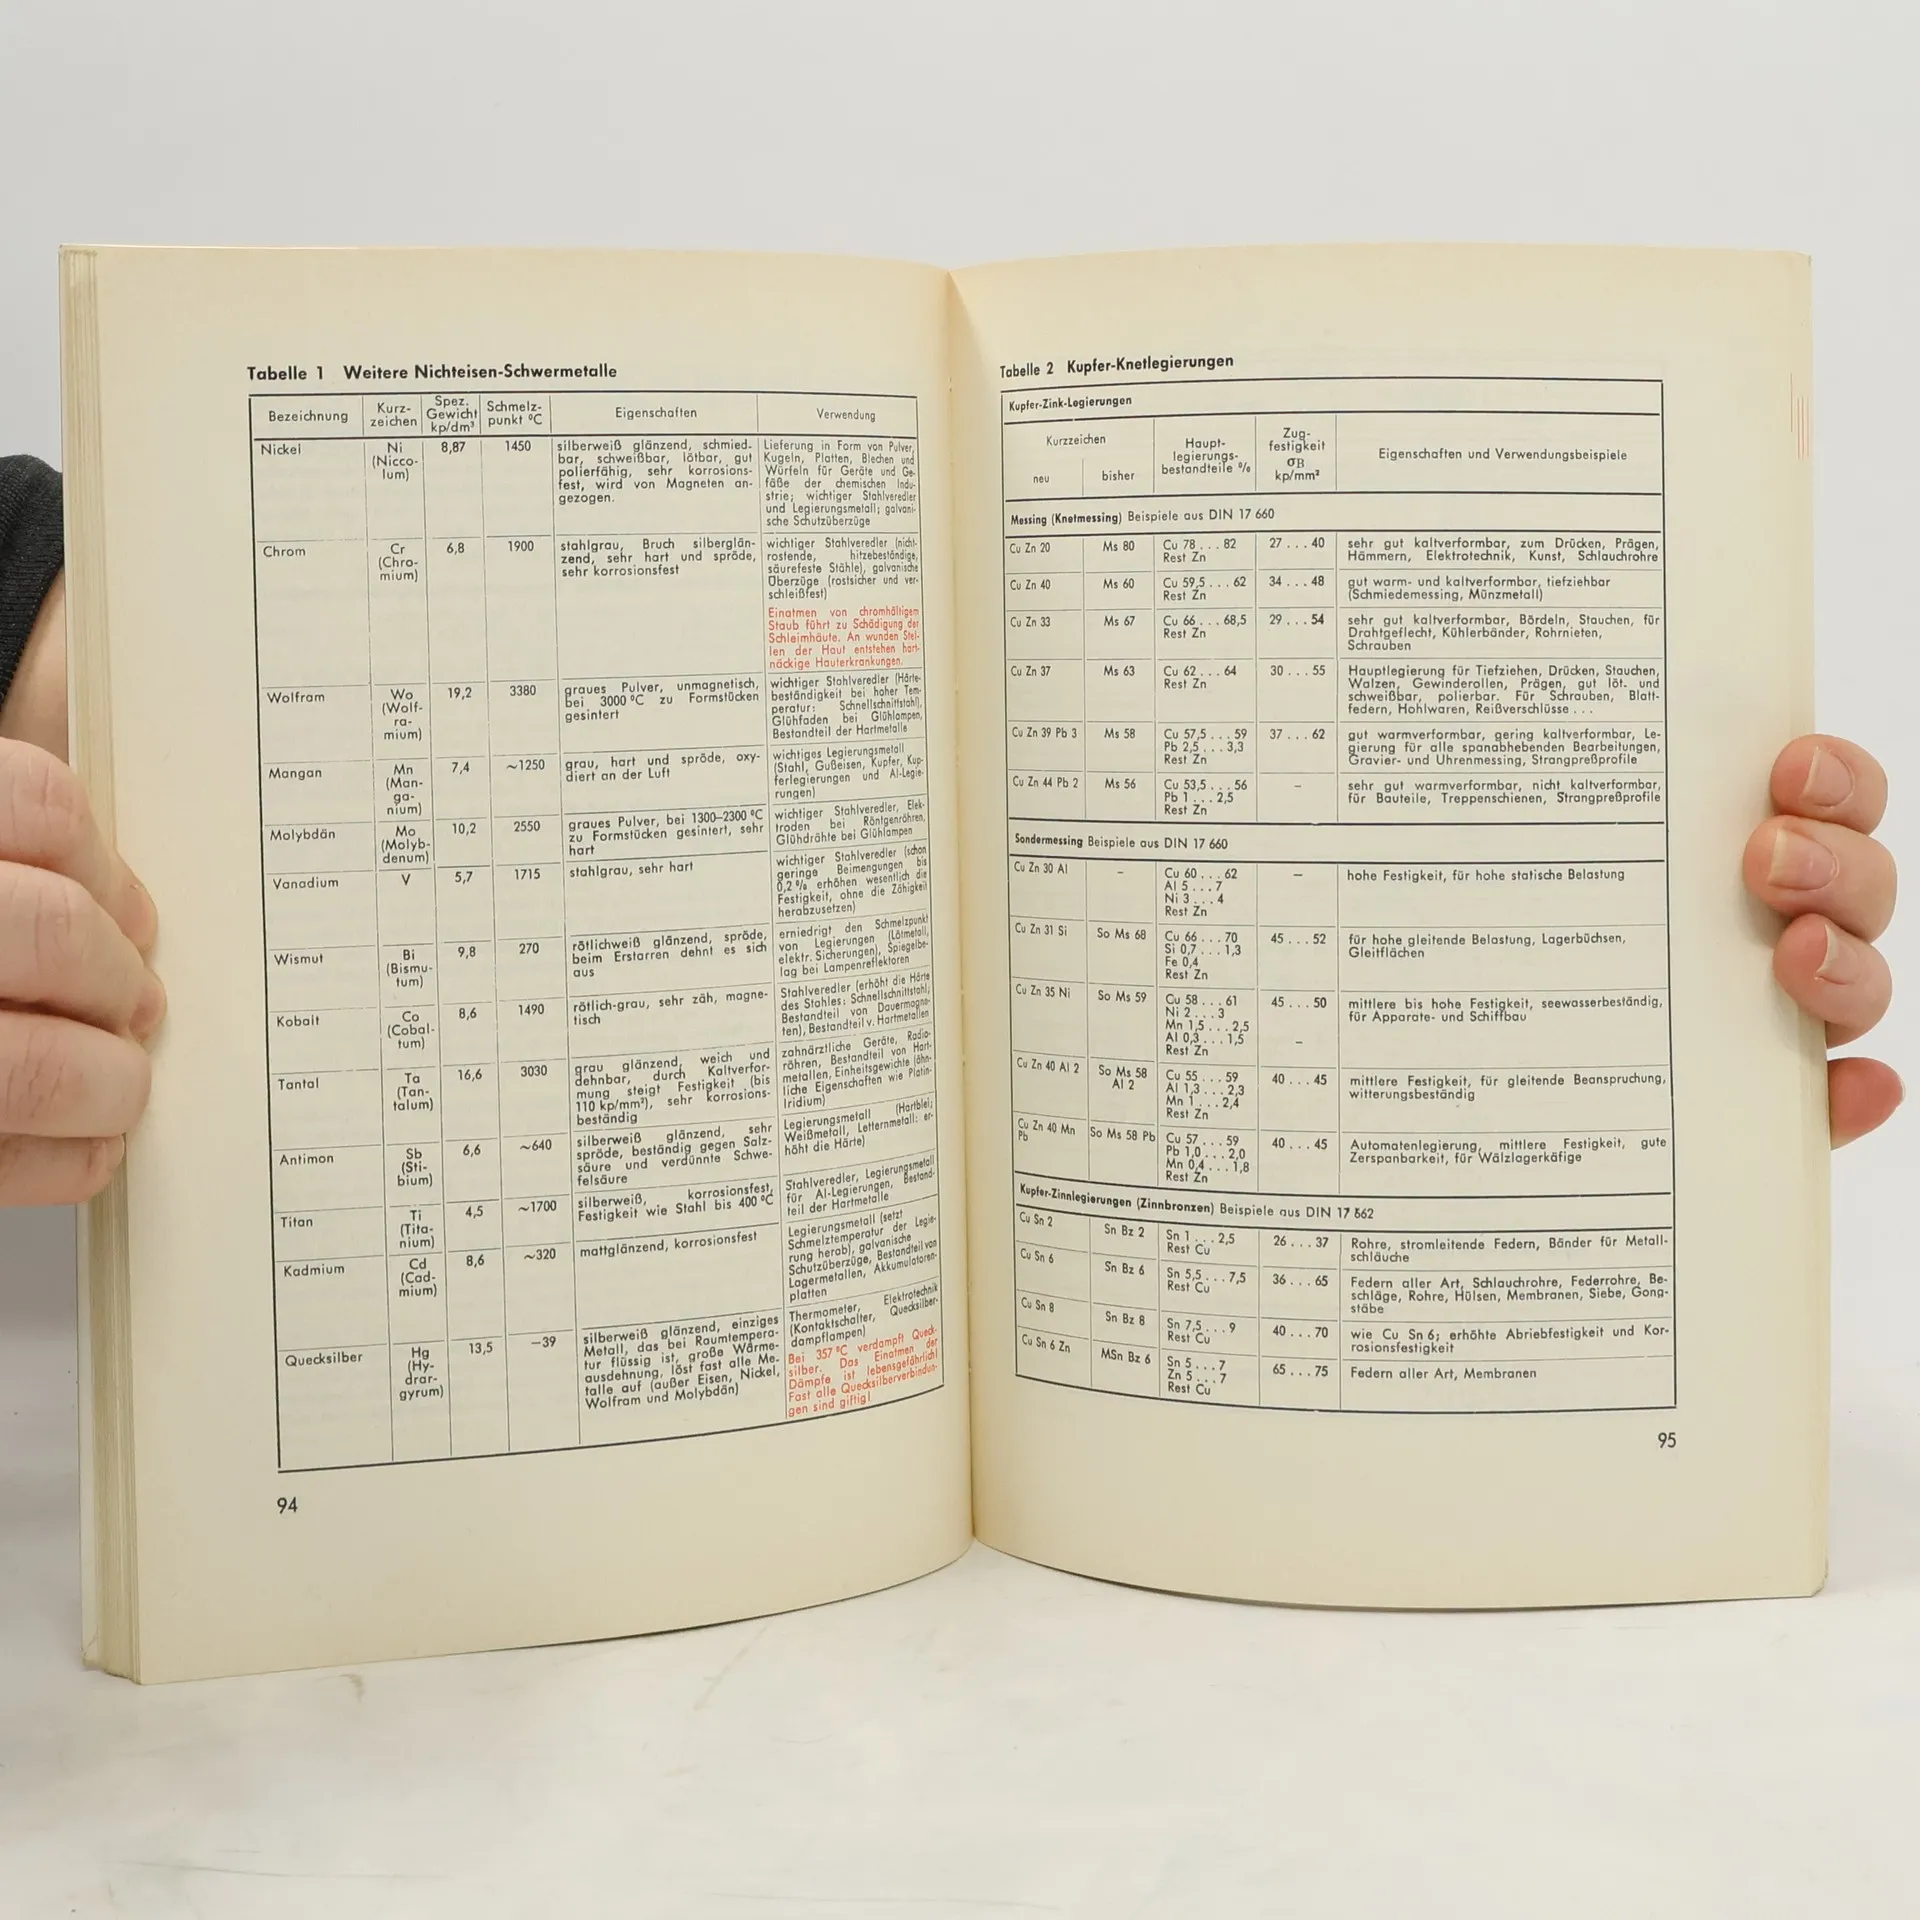 Tabelle 1 Weitere Nichteisen-Schwermetalle
Bezeichnung
Kurz-
zeichen
Spez.
Gewicht
kp/dm³
Schmelz-
punkt °C
Eigenschaften
Verwendung
Nickel
Ni
(Nicco-
lum)
8,87
1450
silberweiß glänzend, schmied-
bar, schweißbar, lötbar, gut
polierfähig, sehr korrosions-
fest, wird von Magneten an-
gezogen.
Lieferung in Form von Pulver,
Kugeln, Platten, Blechen und
Würfeln für Geräte und Ge-
fäße der chemischen Indu-
strie; wichtiger Stahlveredler
und Legierungsmetall; galvani-
sche Schutzüberzüge
Chrom
Cr
(Chro-
mium)
6,8
1900
stahlgrau, Bruch silberglän-
zend, sehr hart und spröde,
sehr korrosionsfest
wichtiger Stahlveredler (nicht-
rostende, hitzebeständige,
säurefeste Stähle), galvanische
Überzüge (rostsicher und ver-
schleißfest)
Einatmen von chromhältigem
Staub führt zu Schädigung der
Schleimhäute. An wunden Stel-
len der Haut entstehen hart-
näckige Hauterkrankungen.
Wolfram
Wo
(Wolf-
ra-
mium)
19,2
3380
graues Pulver, unmagnetisch,
bei 3000 °C zu Formstücken
gesintert
wichtiger Stahlveredler (Härte-
beständigkeit bei hoher Tem-
peratur: Schnellschnittstahl),
Glühfaden bei Glühlampen,
Bestandteil der Hartmetalle
Mangan
Mn
(Man-
ga-
nium)
7,4
~1250
grau, hart und spröde, oxy-
diert an der Luft
wichtiges Legierungsmetall
(Stahl, Gußeisen, Kupfer, Kup-
ferlegierungen und Al-Legie-
rungen)
Molybdän
Mo
(Molyb-
denum)
10,2
2550
graues Pulver, bei 1300–2300 °C
zu Formstücken gesintert, sehr
hart
wichtiger Stahlveredler, Elek-
troden bei Röntgenröhren,
Glühdrähte bei Glühlampen
Vanadium
V
5,7
1715
stahlgrau, sehr hart
wichtiger Stahlveredler (schon
geringe Beimengungen bis
0,2 % erhöhen wesentlich die
Festigkeit, ohne die Zähigkeit
herabzusetzen)
Wismut
Bi
(Bismu-
tum)
9,8
270
rötlichweiß glänzend, spröde,
beim Erstarren dehnt es sich
aus
erniedrigt den Schmelzpunkt
von Legierungen (Lötmetall,
elektr. Sicherungen), Spiegelbe-
lag bei Lampenreflektoren
Kobalt
Co
(Cobal-
tum)
8,6
1490
rötlich-grau, sehr zäh, magne-
tisch
Stahlveredler (erhöht die Härte
des Stahles: Schnellschnittstahl;
Bestandteil von Dauermagne-
ten), Bestandteil v. Hartmetallen
Tantal
Ta
(Tan-
talum)
16,6
3030
grau glänzend, weich und
dehnbar, durch Kaltverfor-
mung steigt Festigkeit (bis
110 kp/mm²), sehr korrosions-
beständig
zahnärztliche Geräte, Radio-
röhren, Bestandteil von Hart-
metallen, Einheitsgewichte (ähn-
liche Eigenschaften wie Platin-
Iridium)
Antimon
Sb
(Sti-
bium)
6,6
~640
silberweiß glänzend, sehr
spröde, beständig gegen Salz-
säure und verdünnte Schwe-
felsäure
Legierungsmetall (Hartblei;
Weißmetall, Letternmetall: er-
höht die Härte)
Titan
Ti
(Tita-
nium)
4,5
~1700
silberweiß, korrosionsfest,
Festigkeit wie Stahl bis 400 °C
Stahlveredler, Legierungsmetall
für Al-Legierungen, Bestand-
teil der Hartmetalle
Kadmium
Cd
(Cad-
mium)
8,6
~320
mattglänzend, korrosionsfest
Legierungsmetall (setzt
Schmelztemperatur der Legie-
rung herab), galvanische
Schutzüberzüge, Bestandteil von
Lagermetallen, Akkumulatoren-
platten
Quecksilber
Hg
(Hy-
drar-
gyrum)
13,5
−39
silberweiß glänzend, einziges
Metall, das bei Raumtempera-
tur flüssig ist, große Wärme-
ausdehnung, löst fast alle Me-
talle auf (außer Eisen, Nickel,
Wolfram und Molybdän)
Thermometer, Elektrotechnik
(Kontaktschalter, Quecksilber-
dampflampen)
Bei 357 °C verdampft Queck-
silber. Das Einatmen der
Dämpfe ist lebensgefährlich!
Fast alle Quecksilberverbindun-
gen sind giftig!
94
Tabelle 2 Kupfer-Knetlegierungen
Kupfer-Zink-Legierungen
Kurzzeichen
neu
bisher
Haupt-
legierungs-
bestandteile %
Zug-
festigkeit
σB
kp/mm²
Eigenschaften und Verwendungsbeispiele
Messing (Knetmessing) Beispiele aus DIN 17 660
Cu Zn 20
Ms 80
Cu 78 . . . 82
Rest Zn
27 . . . 40
sehr gut kaltverformbar, zum Drücken, Prägen,
Hämmern, Elektrotechnik, Kunst, Schlauchrohre
Cu Zn 40
Ms 60
Cu 59,5 . . . 62
Rest Zn
34 . . . 48
gut warm- und kaltverformbar, tiefziehbar
(Schmiedemessing, Münzmetall)
Cu Zn 33
Ms 67
Cu 66 . . . 68,5
Rest Zn
29 . . . 54
sehr gut kaltverformbar, Bördeln, Stauchen, für
Drahtgeflecht, Kühlerbänder, Rohrnieten,
Schrauben
Cu Zn 37
Ms 63
Cu 62 . . . 64
Rest Zn
30 . . . 55
Hauptlegierung für Tiefziehen, Drücken, Stauchen,
Walzen, Gewinderollen, Prägen, gut löt- und
schweißbar, polierbar. Für Schrauben, Blatt-
federn, Hohlwaren, Reißverschlüsse . . .
Cu Zn 39 Pb 3
Ms 58
Cu 57,5 . . . 59
Pb 2,5 . . . 3,3
Rest Zn
37 . . . 62
gut warmverformbar, gering kaltverformbar, Le-
gierung für alle spanabhebenden Bearbeitungen,
Gravier- und Uhrenmessing, Strangpreßprofile
Cu Zn 44 Pb 2
Ms 56
Cu 53,5 . . . 56
Pb 1 . . . 2,5
Rest Zn
–
sehr gut warmverformbar, nicht kaltverformbar,
für Bauteile, Treppenschienen, Strangpreßprofile
Sondermessing Beispiele aus DIN 17 660
Cu Zn 30 Al
–
Cu 60 . . . 62
Al 5 . . . 7
Ni 3 . . . 4
Rest Zn
–
hohe Festigkeit, für hohe statische Belastung
Cu Zn 31 Si
So Ms 68
Cu 66 . . . 70
Si 0,7 . . . 1,3
Fe 0,4
Rest Zn
45 . . . 52
für hohe gleitende Belastung, Lagerbüchsen,
Gleitflächen
Cu Zn 35 Ni
So Ms 59
Cu 58 . . . 61
Ni 2 . . . 3
Mn 1,5 . . . 2,5
Al 0,3 . . . 1,5
Rest Zn
45 . . . 50
–
mittlere bis hohe Festigkeit, seewasserbeständig,
für Apparate- und Schiffbau
Cu Zn 40 Al 2
So Ms 58
Al 2
Cu 55 . . . 59
Al 1,3 . . . 2,3
Mn 1 . . . 2,4
Rest Zn
40 . . . 45
mittlere Festigkeit, für gleitende Beanspruchung,
witterungsbeständig
Cu Zn 40 Mn
Pb
So Ms 58 Pb
Cu 57 . . . 59
Pb 1,0 . . . 2,0
Mn 0,4 . . . 1,8
Rest Zn
40 . . . 45
Automatenlegierung, mittlere Festigkeit, gute
Zerspanbarkeit, für Wälzlagerkäfige
Kupfer-Zinnlegierungen (Zinnbronzen) Beispiele aus DIN 17 662
Cu Sn 2
Sn Bz 2
Sn 1 . . . 2,5
Rest Cu
26 . . . 37
Rohre, stromleitende Federn, Bänder für Metall-
schläuche
Cu Sn 6
Sn Bz 6
Sn 5,5 . . . 7,5
Rest Cu
36 . . . 65
Federn aller Art, Schlauchrohre, Federrohre, Be-
schläge, Rohre, Hülsen, Membranen, Siebe, Gong-
stäbe
Cu Sn 8
Sn Bz 8
Sn 7,5 . . . 9
Rest Cu
40 . . . 70
wie Cu Sn 6; erhöhte Abriebfestigkeit und Kor-
rosionsfestigkeit
Cu Sn 6 Zn
MSn Bz 6
Sn 5 . . . 7
Zn 5 . . . 7
Rest Cu
65 . . . 75
Federn aller Art, Membranen
95